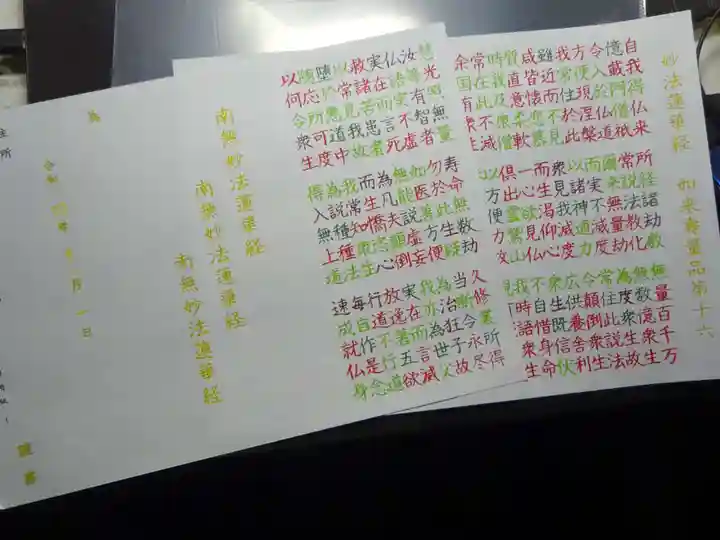 妙法蓮華経 如来寿量品第十六
自我得仏来 所経諸劫数 無量百千万
憶載阿僧祇 常説法教化 無数億衆生
令入於仏道 爾来無量劫 為度衆生故
方便現涅槃 而実不滅度 常住此説法
我常住於此 以諸神通力 令顛倒衆生
雖近而不見 衆見我滅度 広供養舎利
咸皆懐恋慕 而生渇仰心 衆生既信伏
質直意柔軟 一心欲見仏 不自惜身命
時我及衆僧 倶出霊鷲山 我時語衆生
常在此不滅 以方便力
余国有衆生
慧光照無量 寿命無数劫 久修業所得
汝等有智者 勿於此生疑 当断令永尽
仏語実不虚 如医善方便 為治狂子故
実在而言死 無能説虚妄 我亦為世父
救諸苦患者 為凡夫顛倒 実在而言滅
以常見我故 而生憍恣心 放逸著五欲
墮於悪道中 我常知衆生 行道不行道
随応所可度 為説種種法 毎自作是念
以何令衆生 得入無上道 速成就仏身
南無妙法蓮華経
南無妙法蓮華経
南無妙法蓮華経
為
令和 年 月 一日
住所
謹書